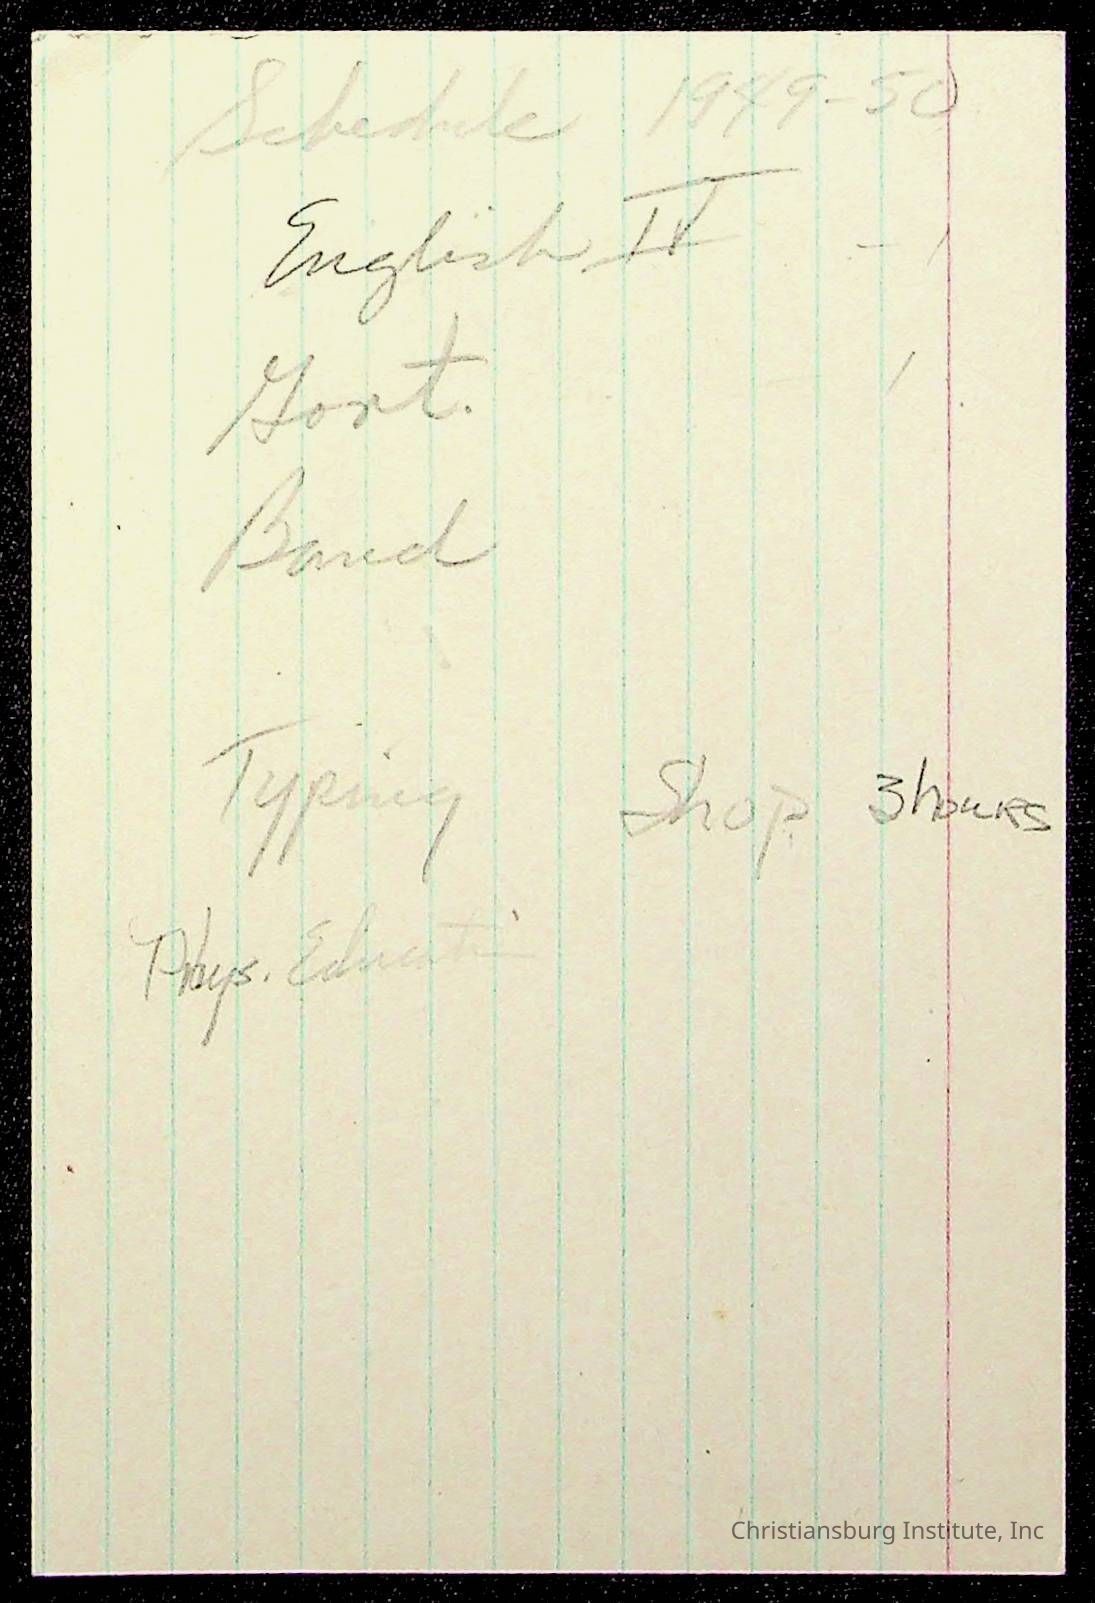 Schedule 1949-50
English IV - 1
Govt. 1
Band
Typing Shop 3 hours
Phys. Educati
Christiansburg Institute, Inc